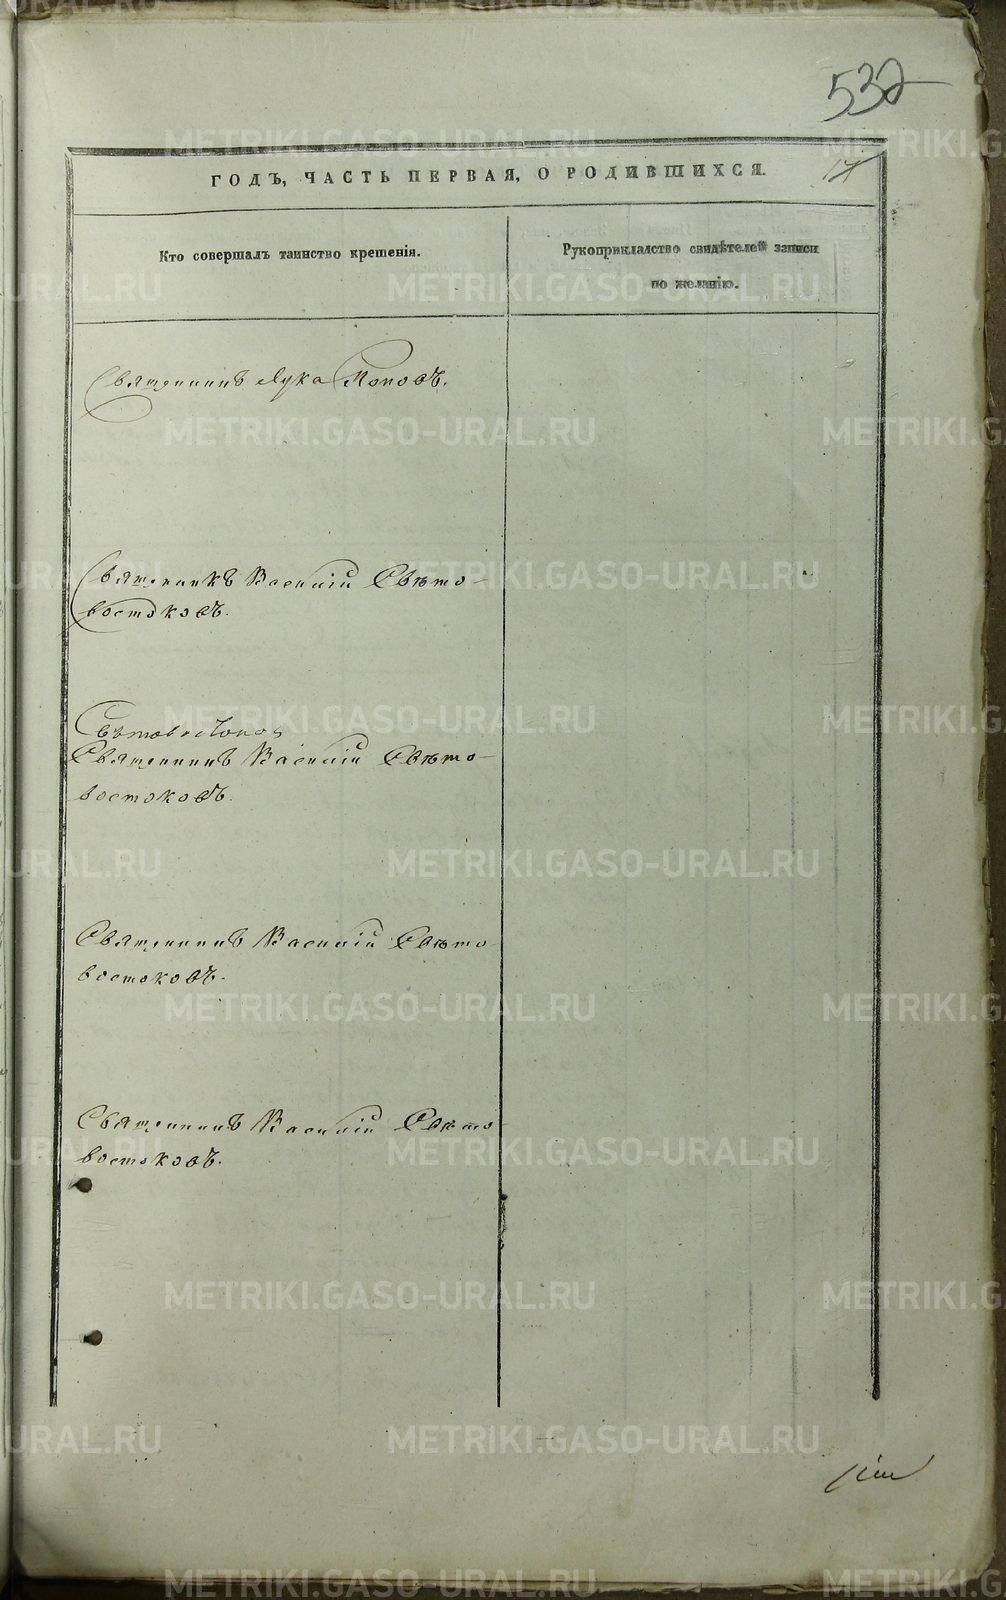 532
17
ГОДЪ, ЧАСТЬ ПЕРВАЯ, О РОДИВШИХСЯ.
Кто совершалъ таинство крещенія.
Рукоприкладство свидѣтелей записи
по желанію.
Священникъ Лука Поповъ.
Священникъ Василій Свѣто-
востоковъ.
Священникъ Василій Свѣто-
востоковъ.
Священникъ Василій Свѣто
востоковъ.
Священникъ Василій Свѣто-
востоковъ.
METRIKI.GASO-URAL.RU